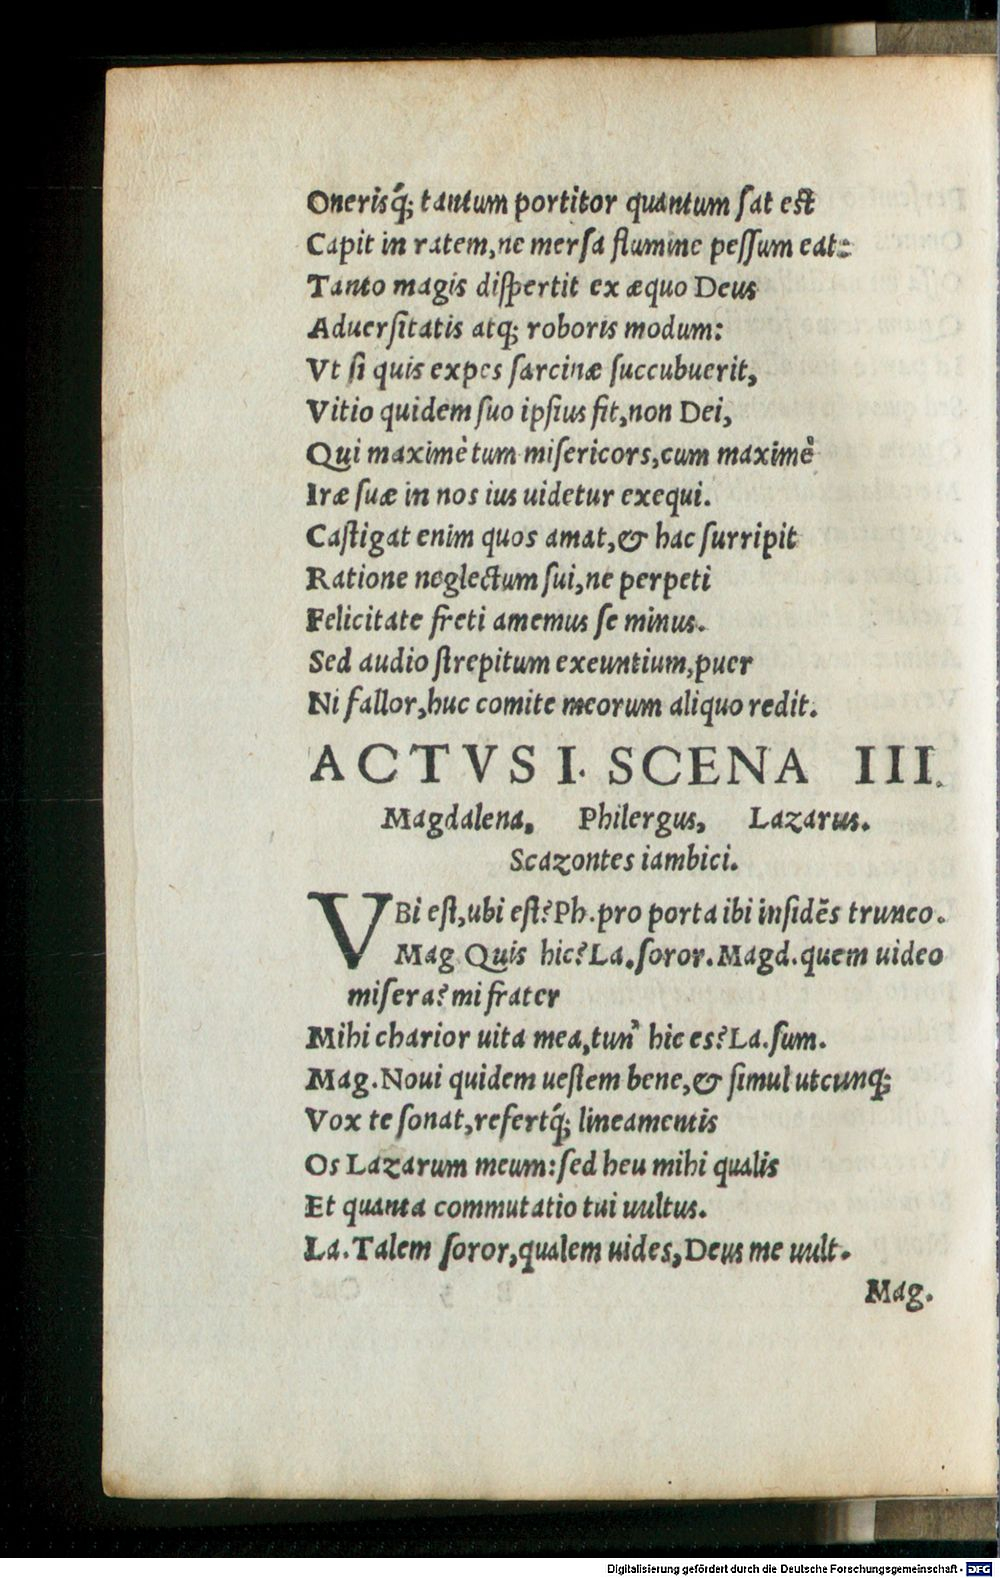 Onerisq́; tantum portitor quantum ſat eſt
Capit in ratem,ne merſa flumine peſſum eat:
Tanto magis diſpertit ex æquo Deus
Aduerſitatis atq; roboris modum:
Vt ſi quis expes ſarcinæ ſuccubuerit,
Vitio quidem ſuo ipſius fit,non Dei,
Qui maximè tum miſericors,cum maximè
Iræ ſuæ in nos ius uidetur exequi.
Caſtigat enim quos amat,& hac ſurripit
Ratione neglectum ſui,ne perpeti
Felicitate freti amemus ſe minus.
Sed audio ſtrepitum exeuntium,puer
Ni fallor,huc comite meorum aliquo redit.
ACTVS I. SCENA III.
Magdalena, Philergus, Lazarus.
Scazontes iambici.
VBi eſt,ubi eſt? Ph.pro porta ibi inſidẽs trunco.
Mag Quis hic? La.ſoror.Magd.quem uideo
miſera? mi frater
Mihi charior uita mea,tun' hic es? La.ſum.
Mag.Noui quidem ueſtem bene,& ſimul utcunq;
Vox te ſonat,refertq́; lineamentis
Os Lazarum meum:ſed heu mihi qualis
Et quanta commutatio tui uultus.
La.Talem ſoror,qualem uides,Deus me uult.
Mag.
Digitalisierung gefördert durch die Deutsche Forschungsgemeinschaft - DFG